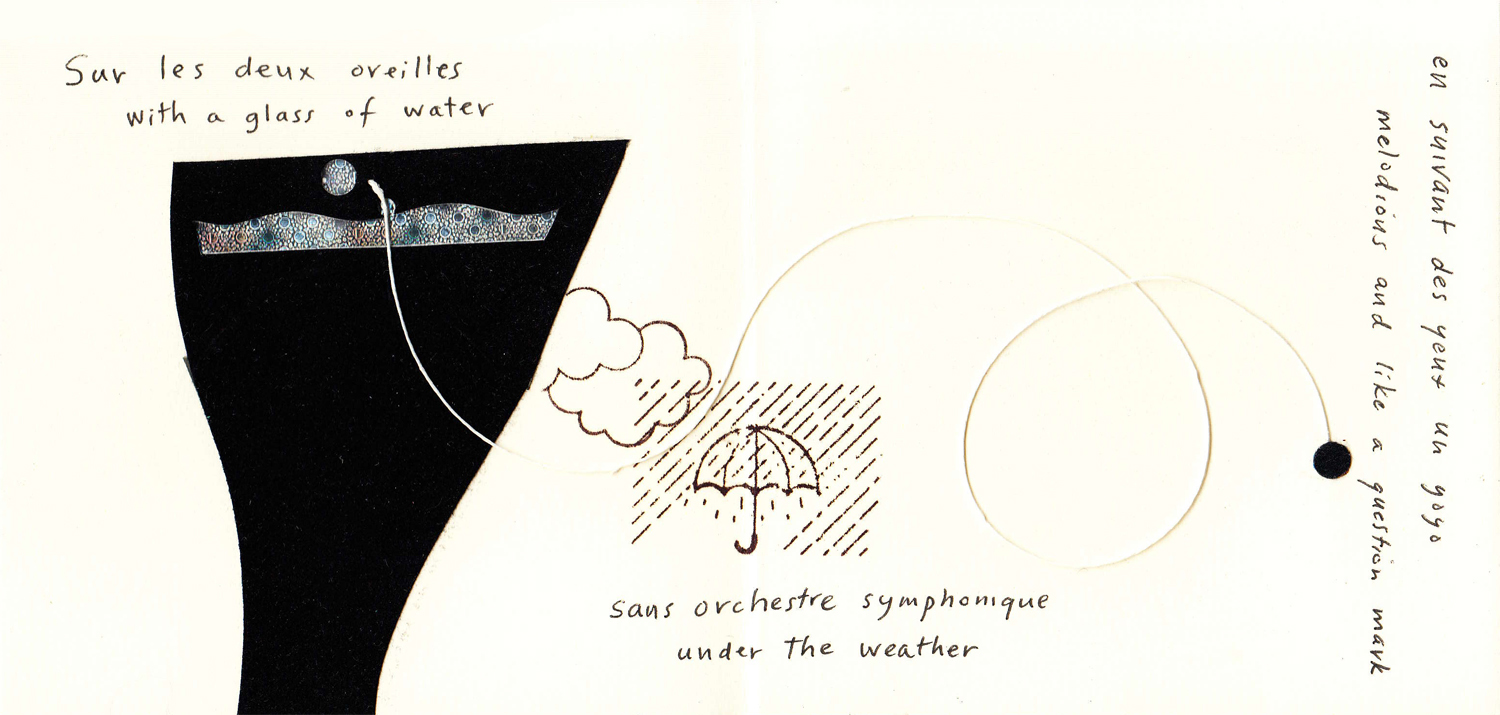 Sur les deux oreilles
with a glass of water
sans orchestre symphonique
under the weather
en suivant des yeux un yoyo
melodious and like a question mark